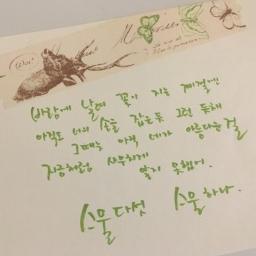 바람에 날려 꽃이 지는 계절엔
아직도 너의 손을 잡은 듯 그런 듯해
그때는 아직 네가 아름다운 걸
지금처럼 사무치게 알지 못했어.
스물다섯 스물하나.